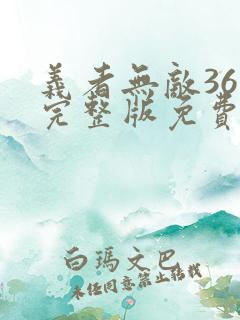 義者無敵36
完整版免費
白瑪文巴
未经同意禁止转载